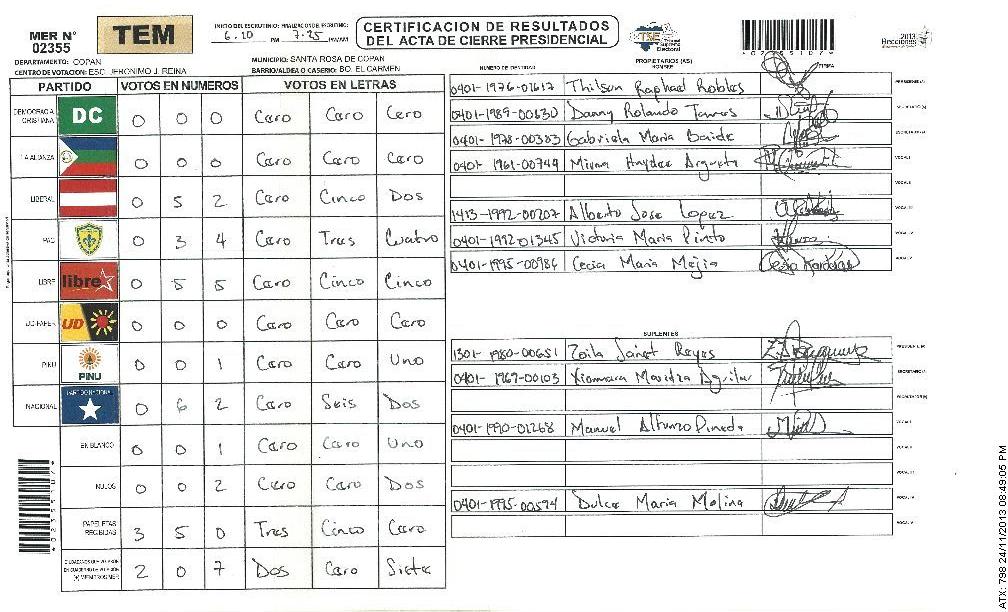 MER N° 02355
TEM
INICIO DEL ESCRUTINIO: FINALIZACION DEL ESCRUTINIO:
6.20 PM 7.25 PM/AM
CERTIFICACION DE RESULTADOS
DEL ACTA DE CIERRE PRESIDENCIAL
TSE Tribunal Supremo Electoral
2013 Elecciones
DEPARTAMENTO: COPAN
MUNICIPIO: SANTA ROSA DE COPAN
CENTRO DE VOTACION: ESC. JERONIMO J. REINA
BARRIO/ALDEA O CASERIO: BO. EL CARMEN
PARTIDO VOTOS EN NUMEROS VOTOS EN LETRAS
DEMOCRACIA CRISTIANA DC 0 0 0 Cero Cero Cero
LA ALIANZA 0 0 0 Cero Cero Cero
LIBERAL 0 5 2 Cero Cinco Dos
PAC 0 3 4 Cero Tres Cuatro
LIBRE libre 0 5 5 Cero Cinco Cinco
UD-FAPER UD 0 0 0 Cero Cero Cero
PINU PINU 0 0 1 Cero Cero Uno
NACIONAL PARTIDO NACIONAL 0 6 2 Cero Seis Dos
EN BLANCO 0 0 1 Cero Cero Uno
NULOS 0 0 2 Cero Cero Dos
PAPELETAS RECIBIDAS 3 5 0 Tres Cinco Cero
2 0 7 Dos Cero Siete
NUMERO DE IDENTIDAD PROPIETARIOS (AS) NOMBRE FIRMA
0401-1976-01617 Thilson Raphael Robles PRESIDENTE(A)
0401-1989-00630 Danny Rolando Torres SECRETARIO(A)
0401-1978-00383 Gabriela Maria Baide ESCRUTADOR(A)
0401-1961-00744 Mirna Haydee Argueta VOCAL I
VOCAL II
1413-1992-00207 Alberto Jose Lopez VOCAL III
0401-1992-01345 Victoria Maria Pineto VOCAL IV
0401-1995-00984 Cecia Maria Mejia VOCAL V
SUPLENTES
1301-1980-00651 Zoila Janet Reyes PRESIDENTE(A)
0401-1969-00103 Xiomara Maritza Aguilar SECRETARIO(A)
ESCRUTADOR(A)
0401-1990-01268 Manuel Alfonzo Pineda VOCAL I
VOCAL II
VOCAL III
0401-1995-00594 Dulce Maria Molina VOCAL IV
VOCAL V
ATX: 798 24/11/2013 08:49:05 PM